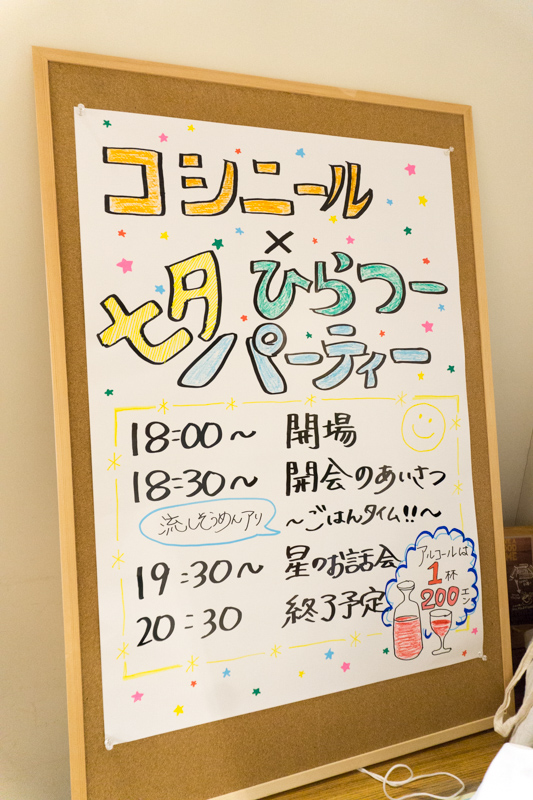 コシニール
×
ひらつー
七夕
パーティー
18:00～ 開場
18:30～ 開会のあいさつ
流しそうめんアリ
～ごはんタイム!!～
19:30～ 星のお話会
20:30 終了予定
アルコールは
1杯
200エン